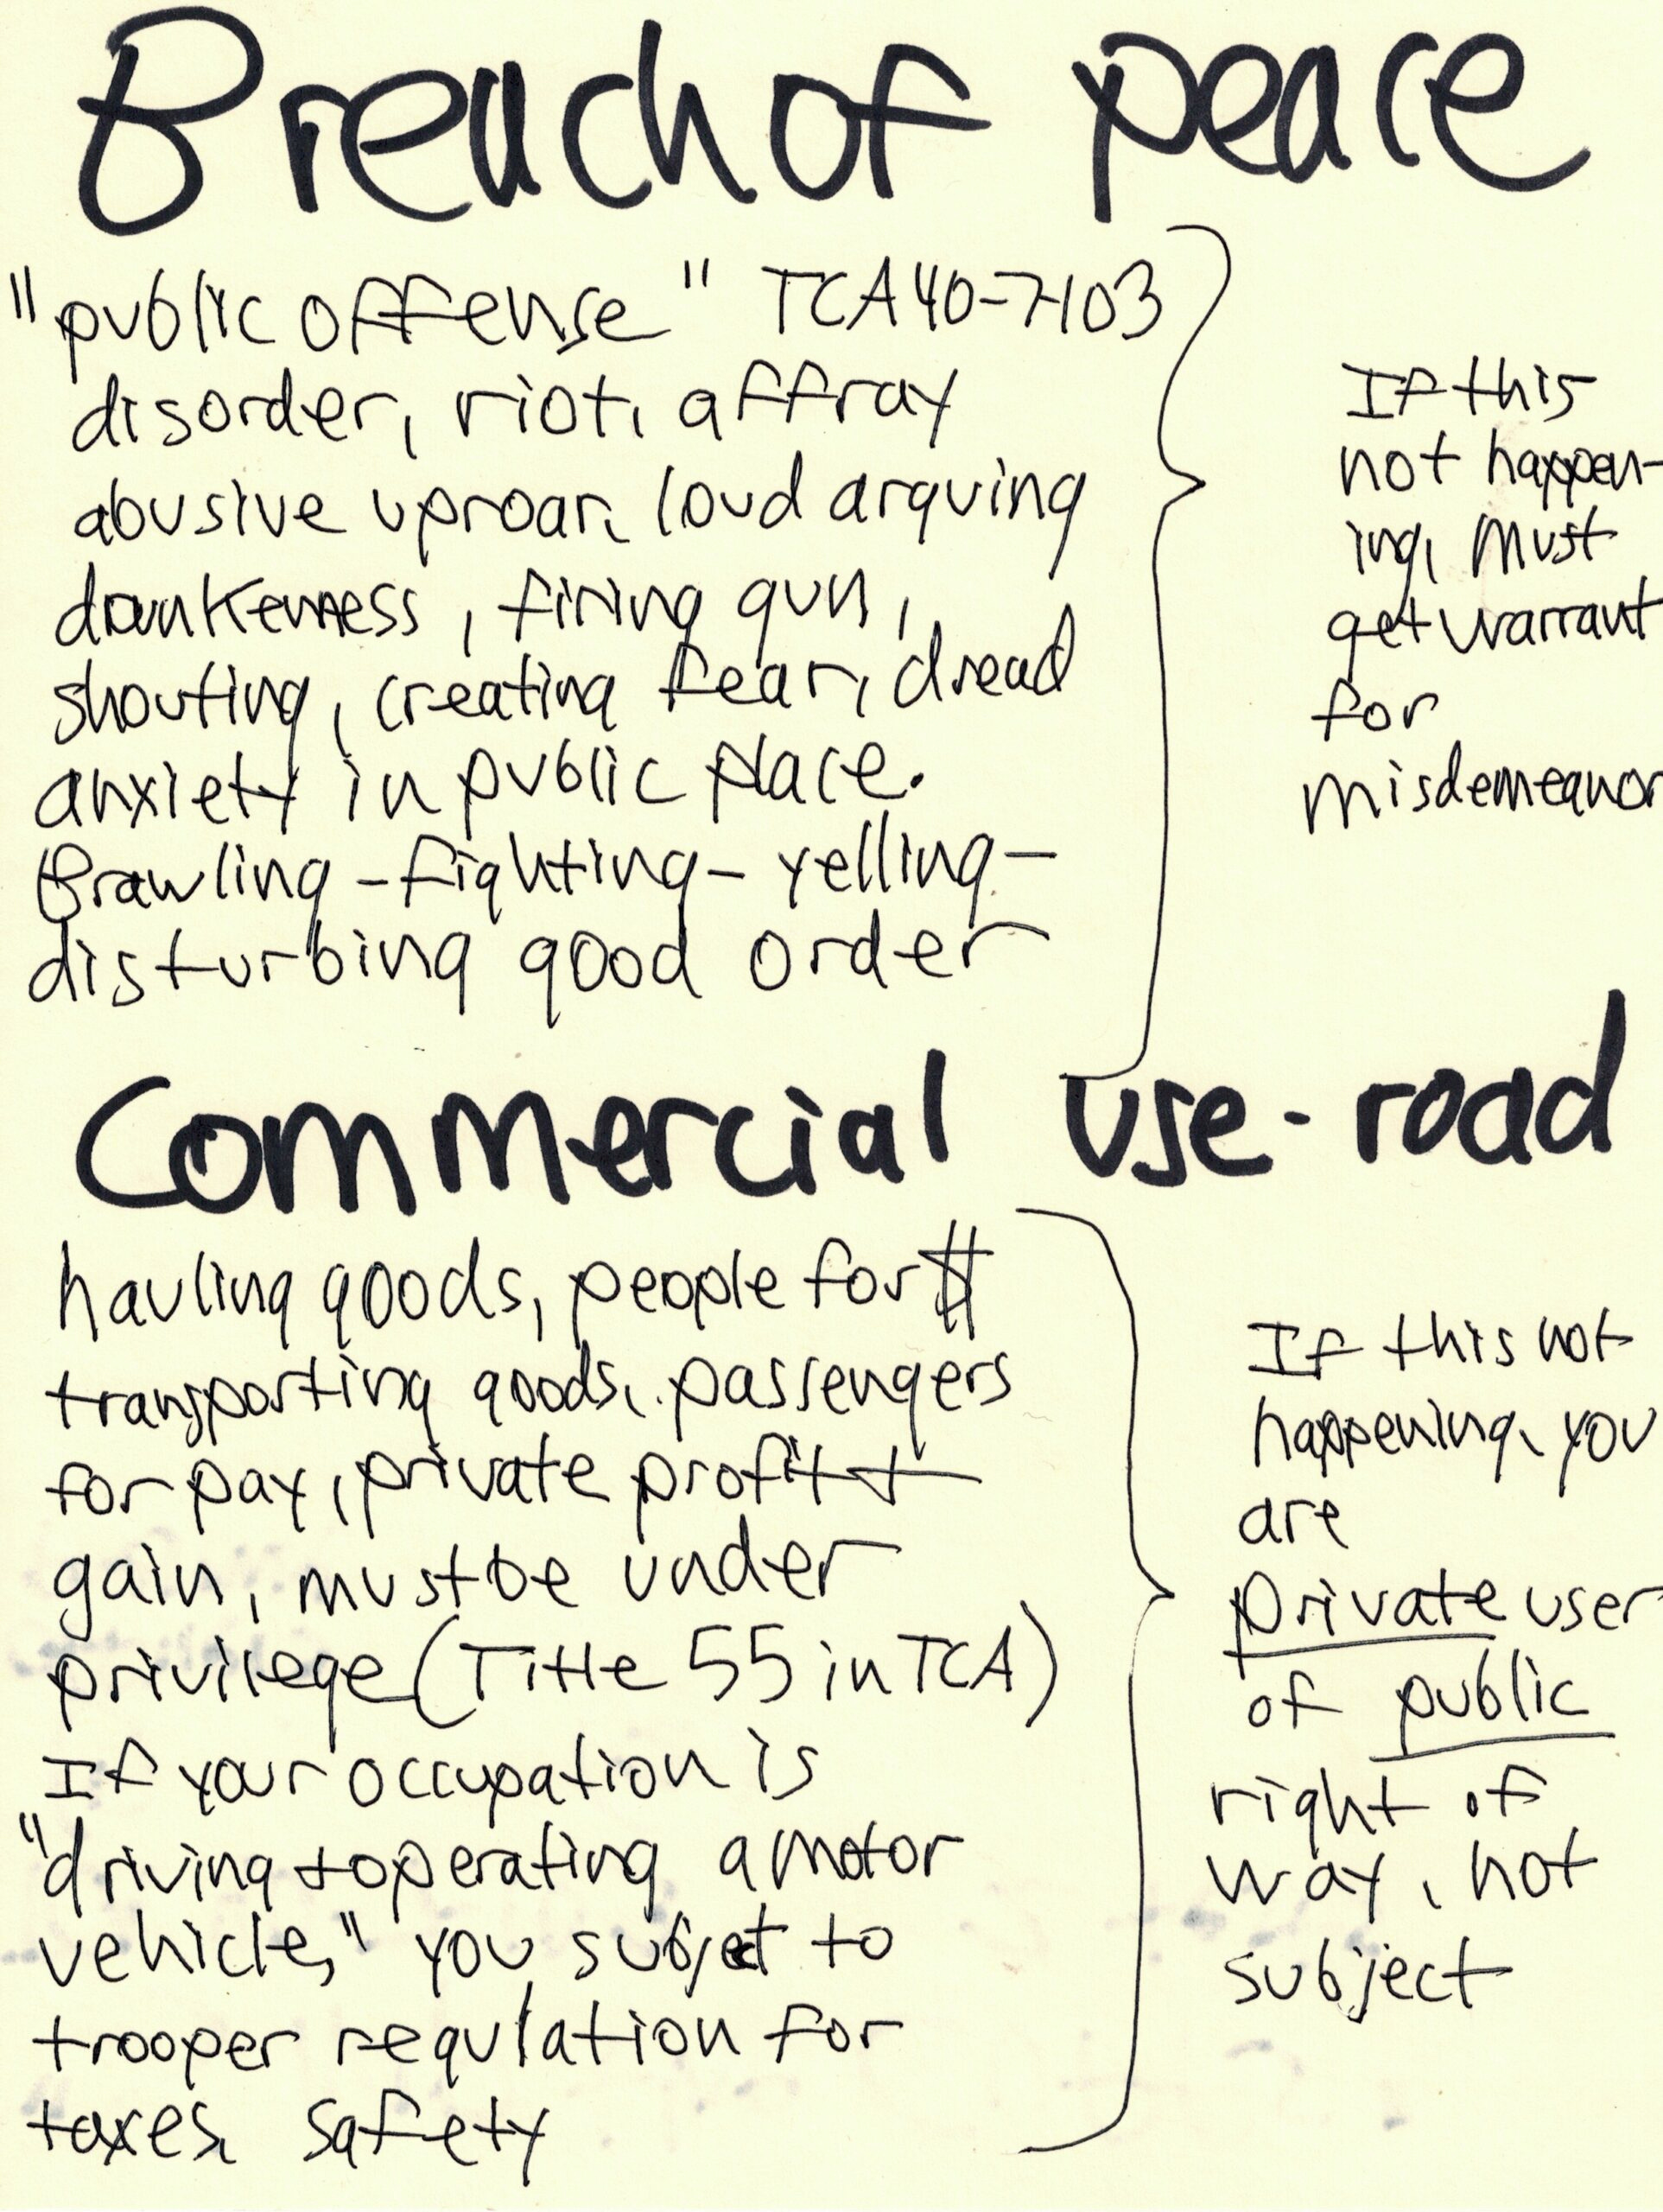 Breach of peace
"public offense" TCA 40-7-103
disorder, riot, affray
abusive uproar, loud arguing
drunkenness, firing gun,
shouting, creating fear, dread
anxiety in public place.
Brawling - fighting - yelling -
disturbing good order
If this
not happen-
ing, must
get warrant
for
misdemeanor
Commercial use - road
hauling goods, people for $
transporting goods, passengers
for pay, private profit +
gain, must be under
privilege (Title 55 in TCA)
If your occupation is
"driving + operating a motor
vehicle," you subject to
trooper regulation for
taxes, safety
If this not
happening, you
are
private user
of public
right of
way, not
subject